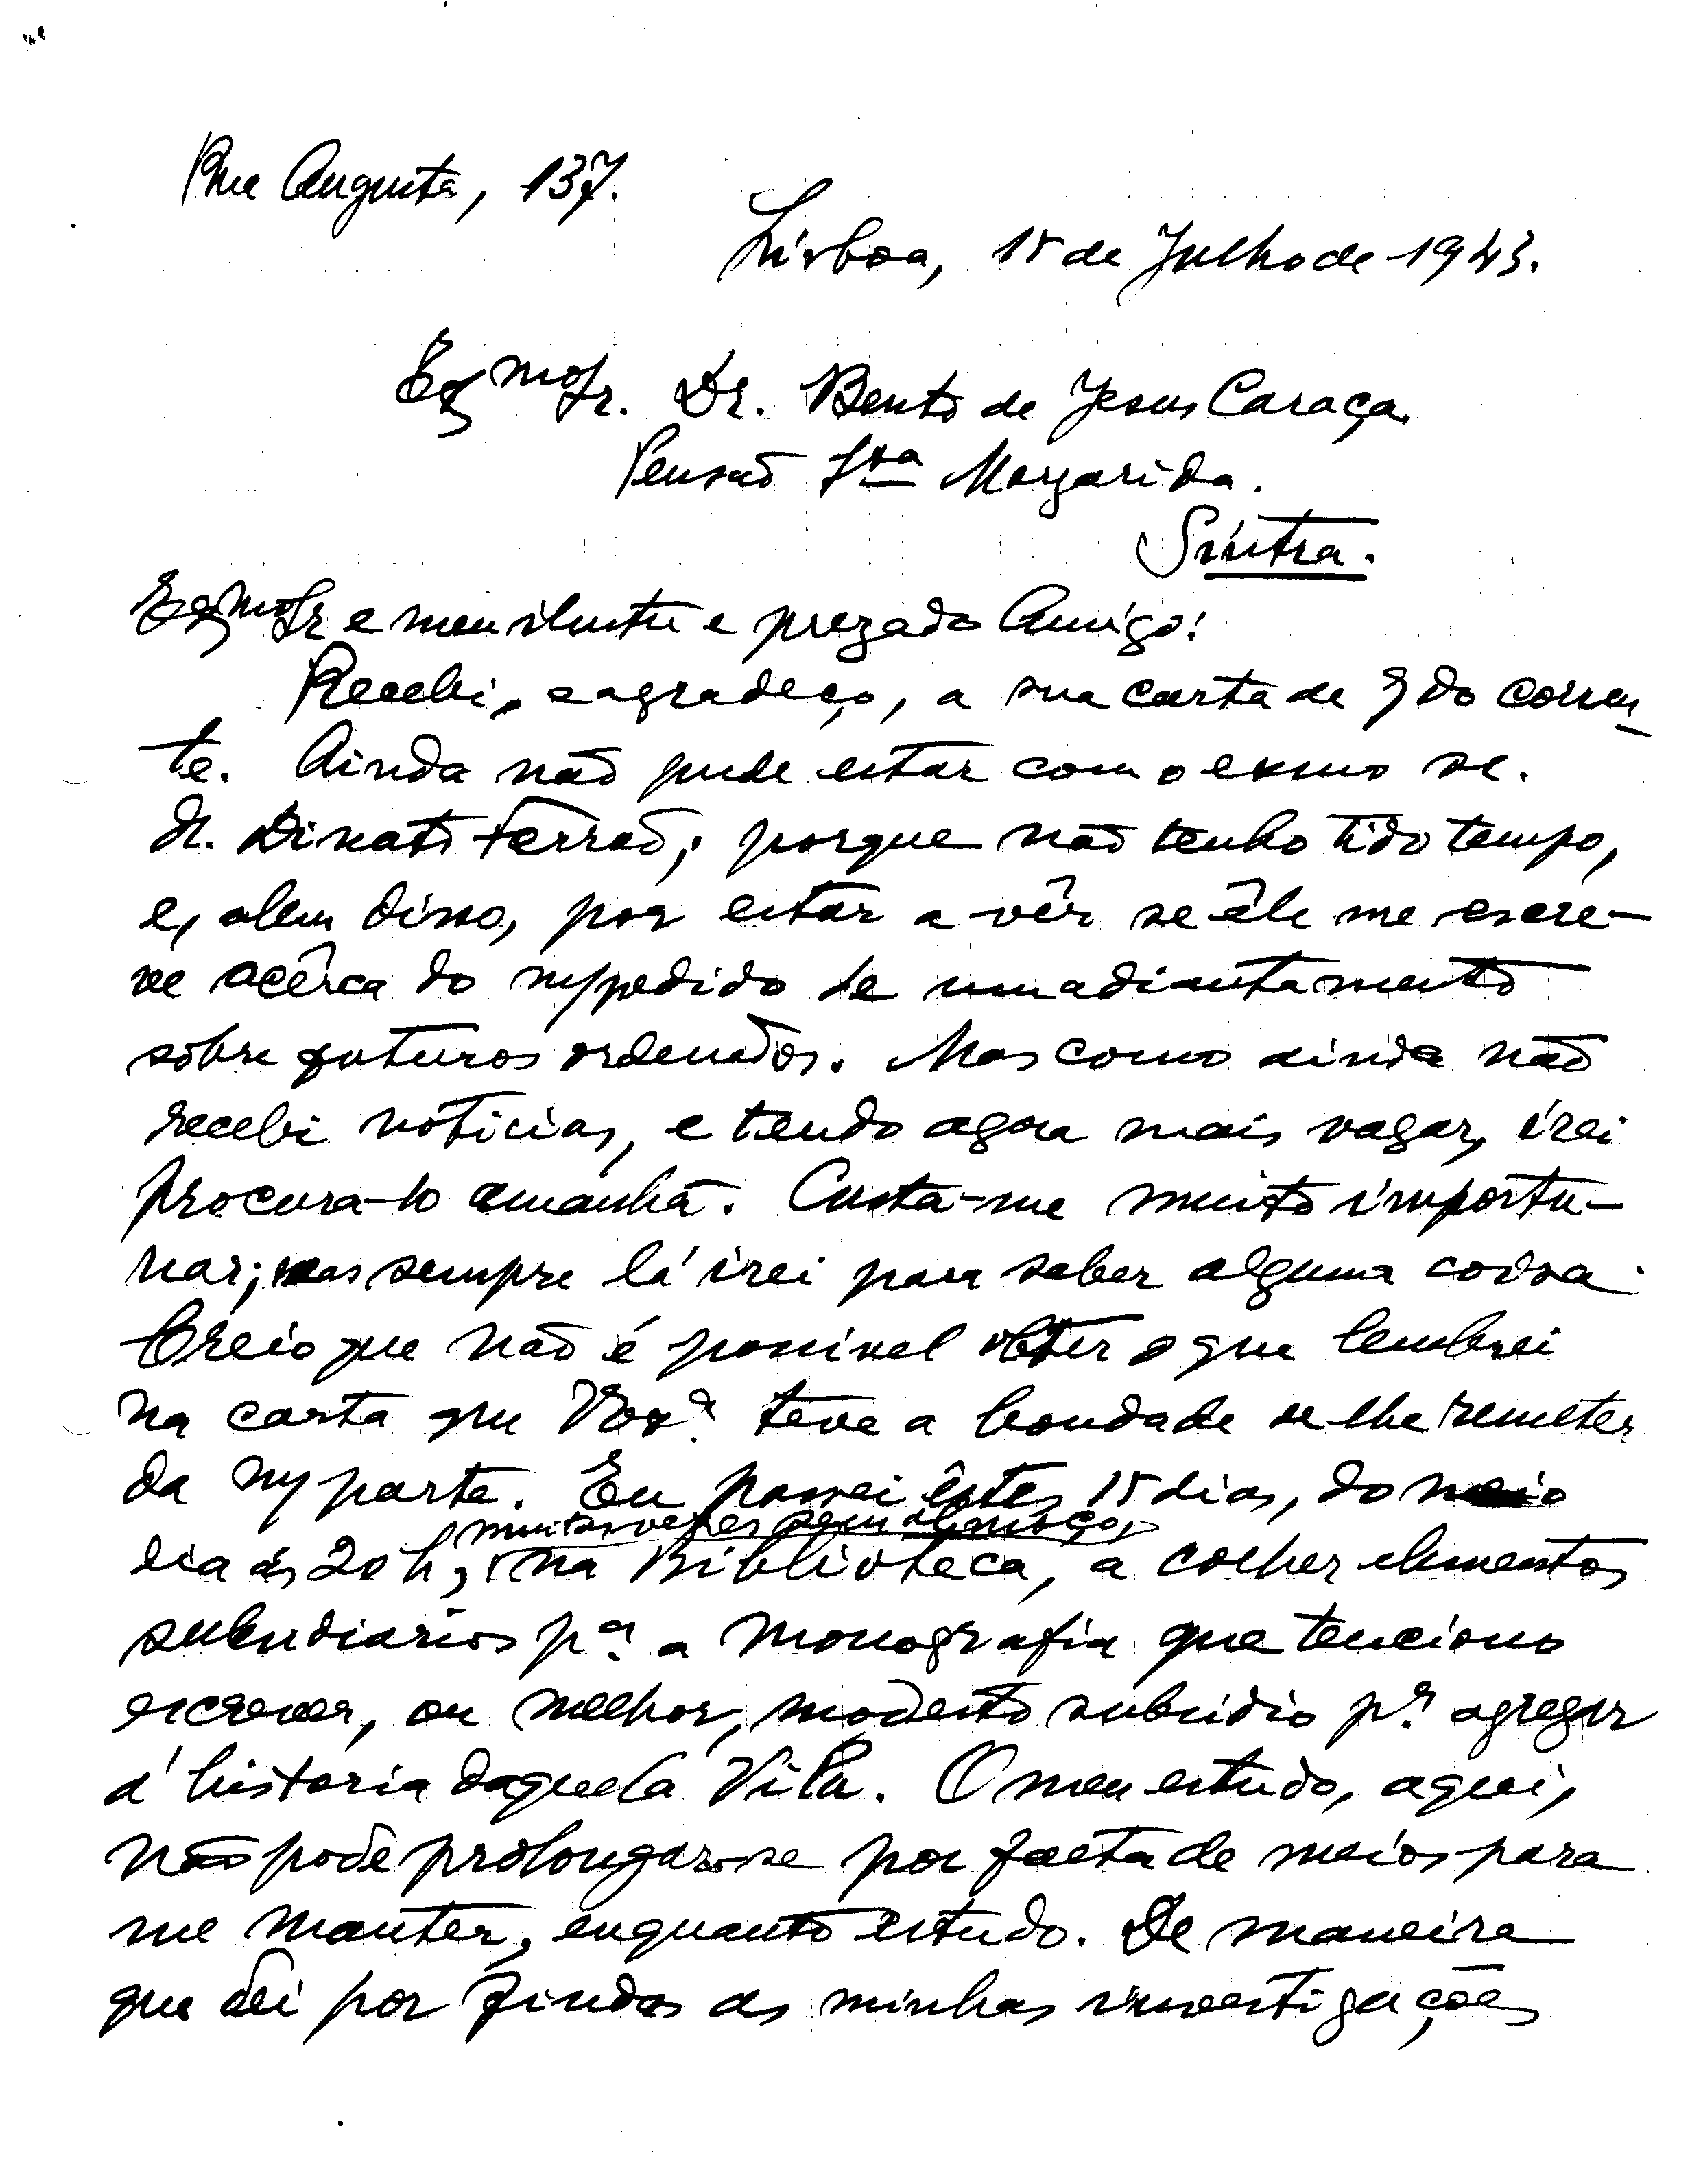 Rua Augusta, 137.
Lisboa, 15 de Julho de 1943.
Exmo Sr. Dr. Bento de Jesus Caraça
Pensão Sta Margarida.
Sintra.
Exmo Sr e meu ilustre e prezado Amigo:
Recebi, e agradeço, a sua carta de 9 do corren-
te. Ainda não pude estar com o exmo sr.
dr. Ferrão; porque não tenho tido tempo,
e, alem disso, por estar a vêr se êle me escre-
ve acêrca do m/pedido de um adiantamento
sôbre futuros ordenados. Mas como ainda não
recebi noticias, e tendo agora mais vagar, irei
procura-lo amanhã. Custa-me muito importu-
nar; mas sempre lá irei para saber alguma coisa.
Creio que não é possivel obter o que lembrei
na carta que V. Exª teve a bondade de lhe remeter
da m/ parte. Eu passei êstes 15 dias, do meio
muitas vezes sem almoço,
dia ás 20 h, na Biblioteca, a colher elementos
subsidiarios pª a monografia que tenciono
escrever, ou melhor, modesto subsidio pª agregar
á historia daquela Vila. O meu estudo, aqui,
não pode prolongar-se por falta de meios para
me manter, enquanto estudo. De maneira
que dei por findas as minhas investigações